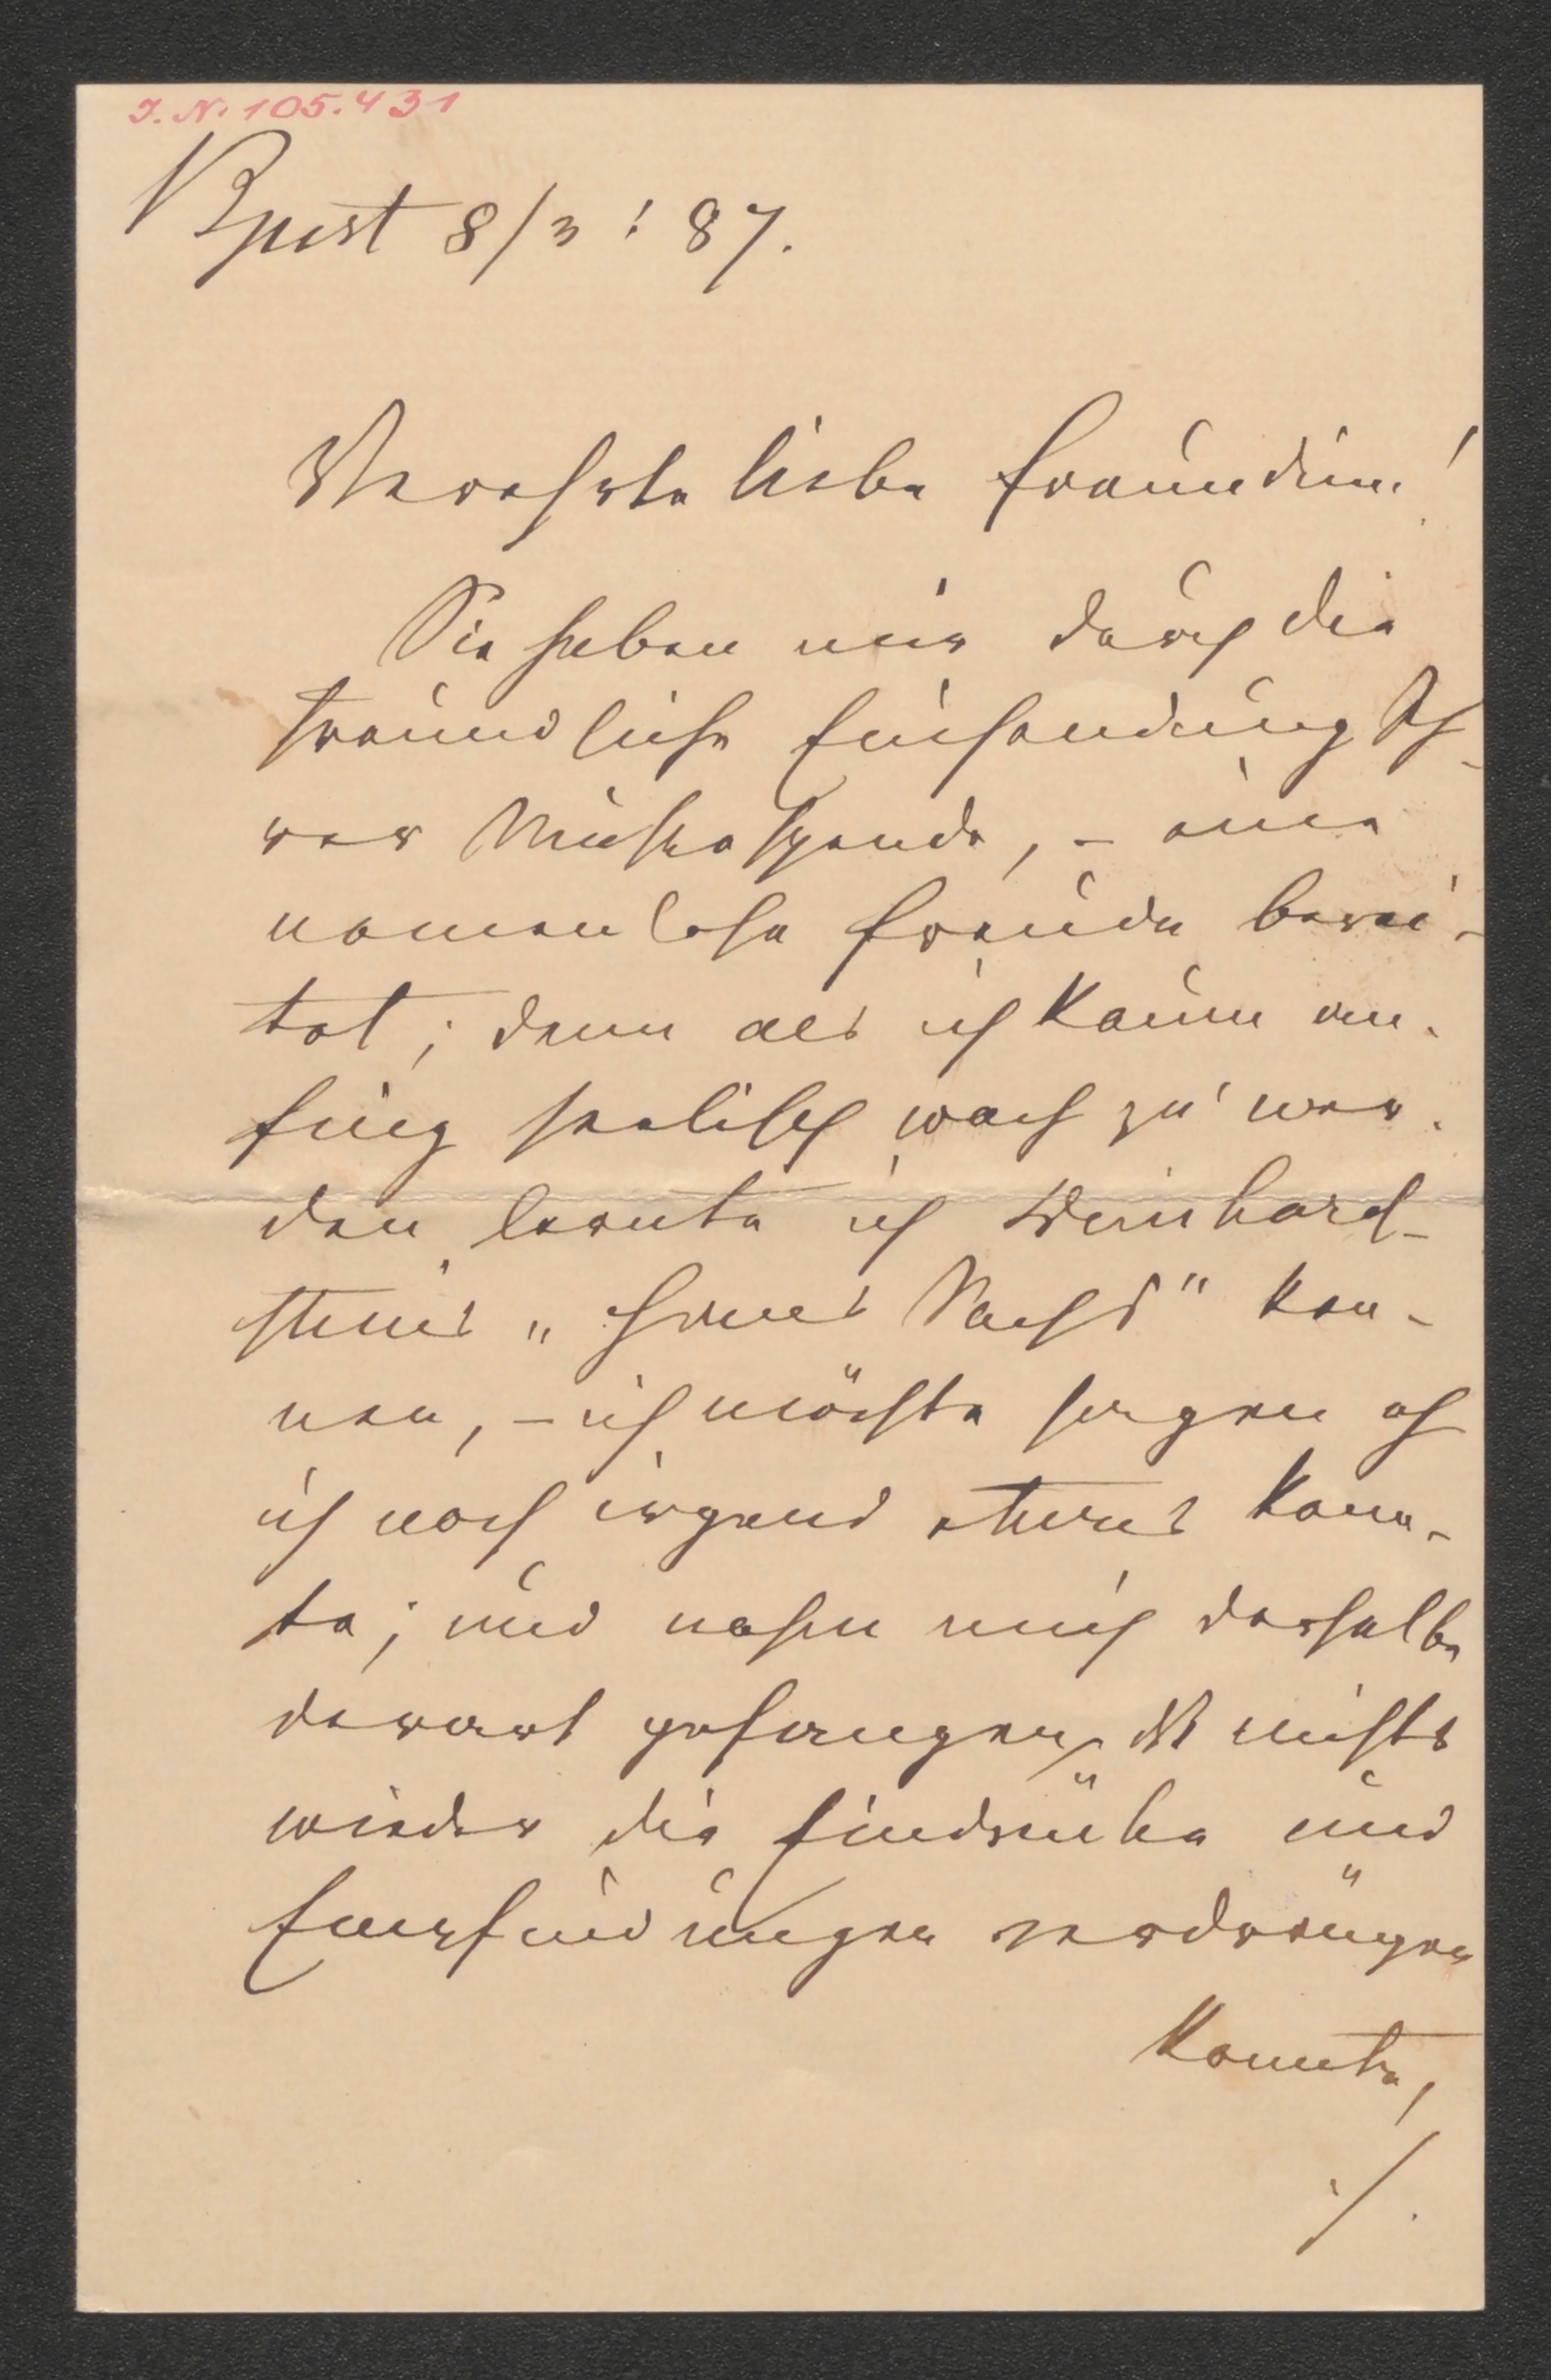 I. N. 105.431
Bpest 8/3 : 87.
Verehrte liebe Freundin!
Sie haben mir durch die
freundliche Einsendung Ih-
rer Musespende, – eine
namenlose Freude berei-
tet; denn als ich kaum an-
fing seelisch wach zu wer-
den lernte ich Deinhard-
steins „Hans Sachs" ken-
nen, – ich möchte sagen eh
ich noch irgend etwas kann-
te; und nahm mich derselbe
derart gefangen, dß nichts
wieder die Eindrücke und
Empfindungen verdrängen
konnte,
./.